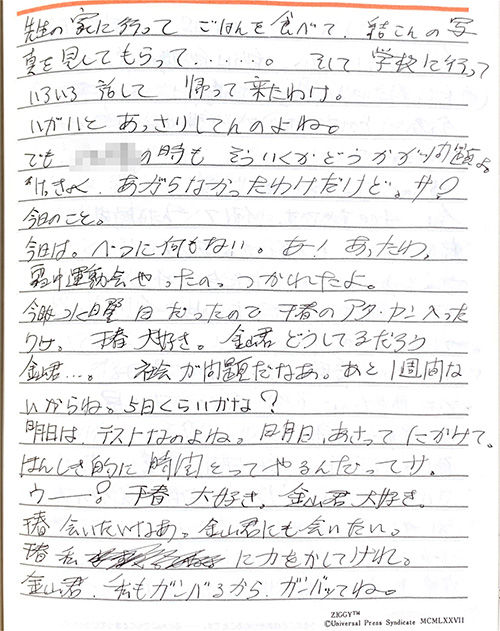 先生の家に行って ごはんを食べて、結こんの写
真を見してもらって……。 そして 学校に行って
いろいろ話して 帰って来たわけ。
いがいと あっさりしてんのよね。
でも の時も そういくかどうかが問題よ。
けっきょく、あがらなかったわけだけど。サ?
今日のこと。
今日は。べつに何もない。あー! あったわ。
運動会やったの。つかれたよ。
今日 日曜日だったので 千春のアタ・カン入った
わけ。 千春 大好き。金山君どうしてるだろう
金山君…。 社会が問題だなあ。あと1週間な
いからね。5日くらいかな?
明日は、テストなのよね。明日、あさってにかけて。
はんしき的に 時間とってやるんだってサ。
ウ——? 千春 大好き。金山君 大好き。
千春 会いたいなあ。金山君にも会いたい。
千春 私 に力をかしてけれ。
金山君、私もガンバるから、ガンバってね。
ZIGGY™
©Universal Press Syndicate MCMLXXVII